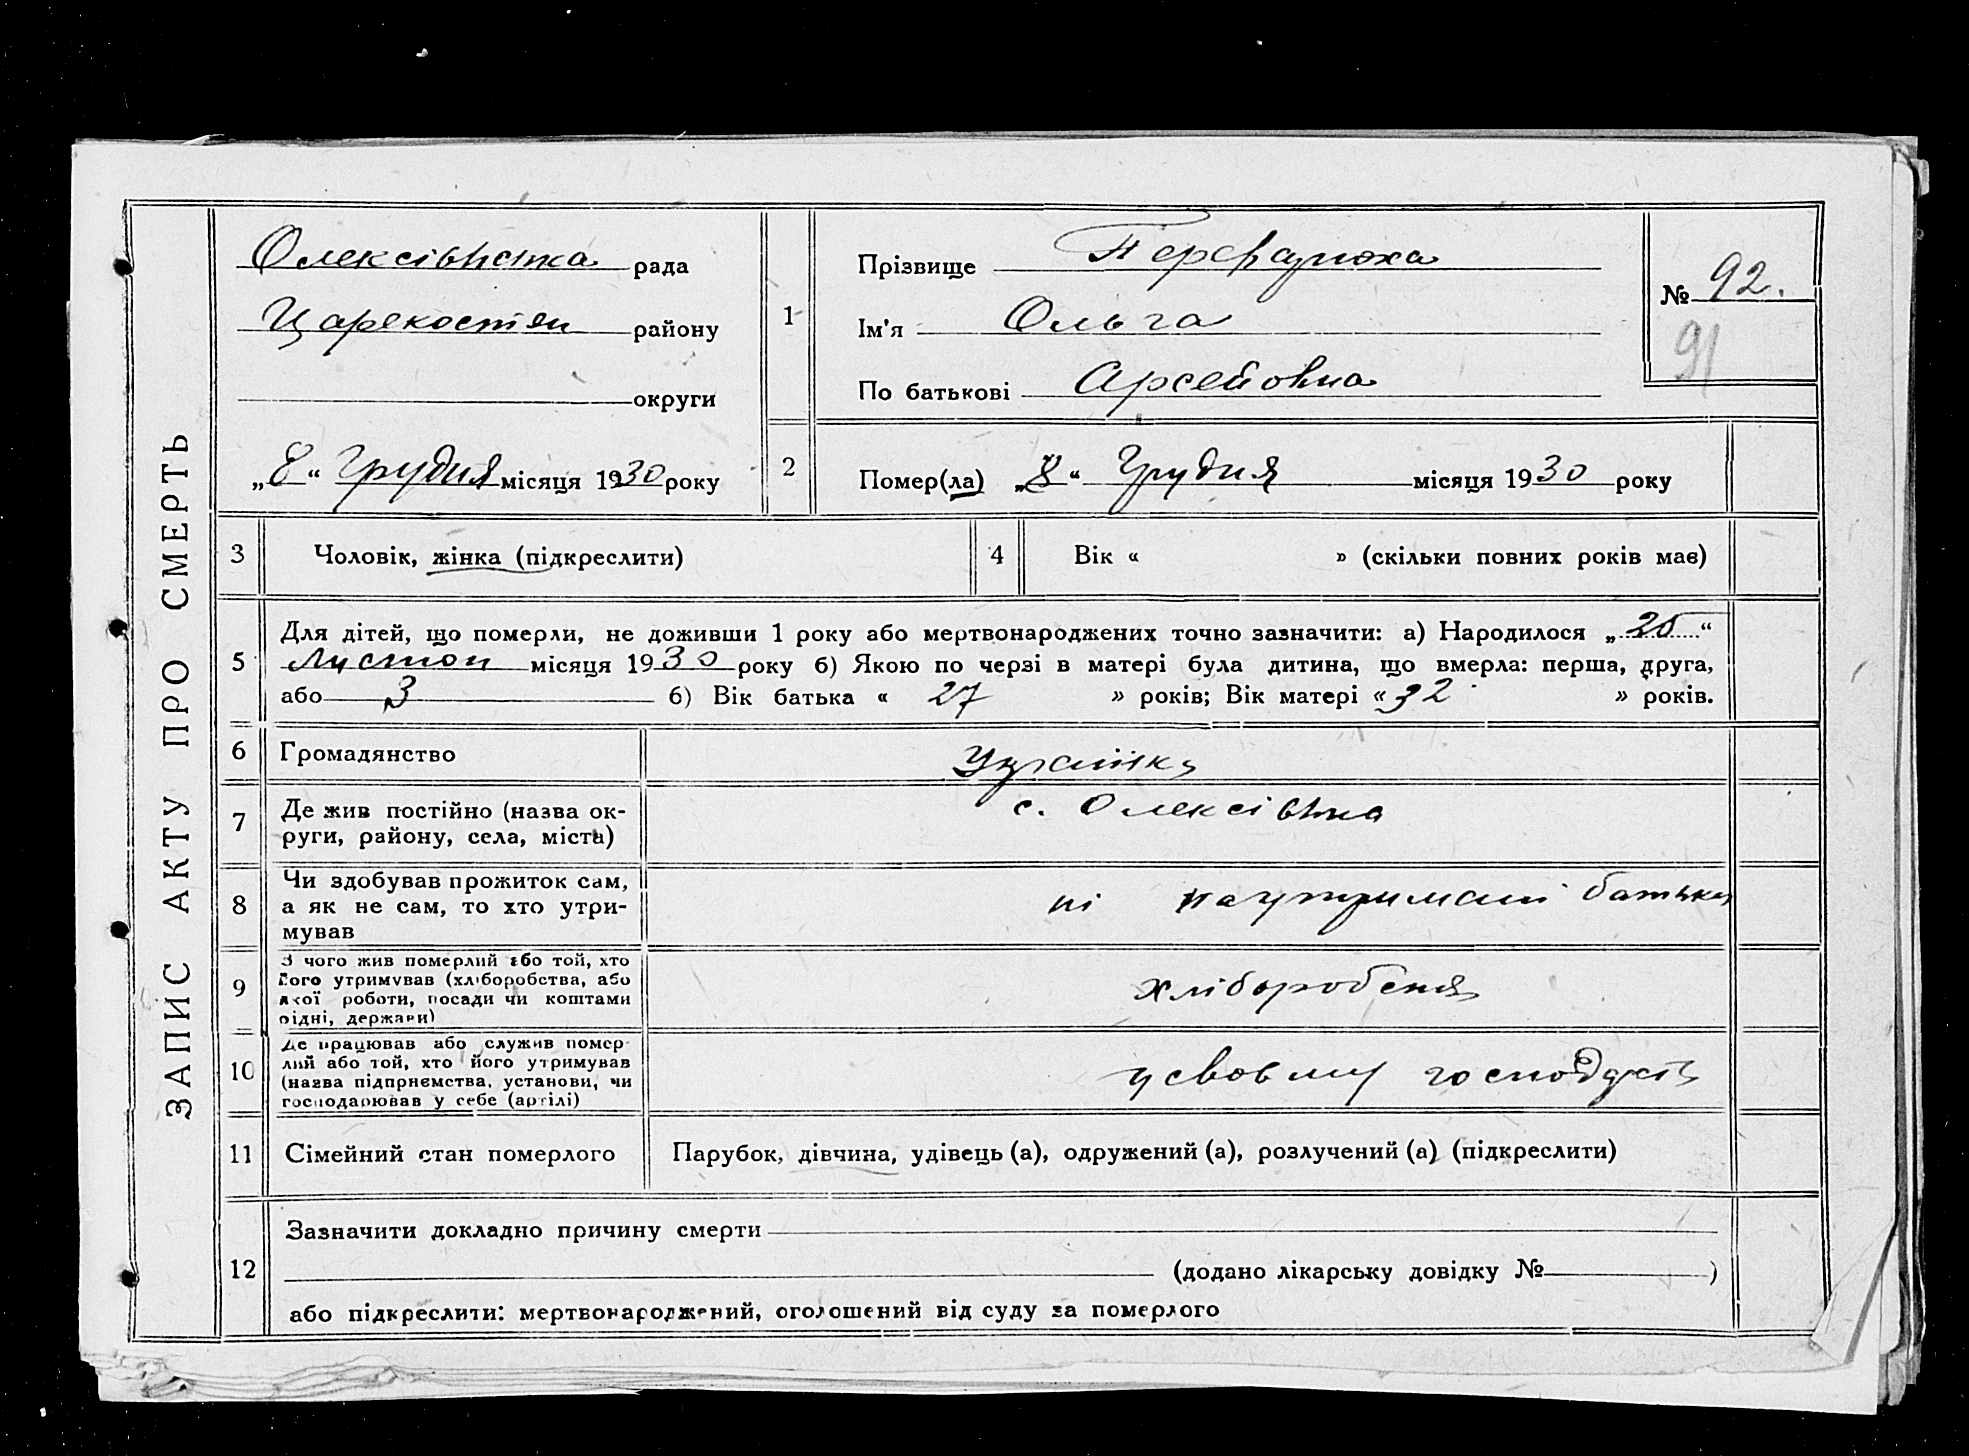 ЗАПИС АКТУ ПРО СМЕРТЬ
Олексівська рада
Царекостян району
округи
„8“ Грудня місяця 1930 року
1
Прізвище
Ім'я Ольга
По батькові Арсейовна
№ 92.
91
2
Помер(ла) „8“ Грудня місяця 1930 року
3
Чоловік, жінка (підкреслити)
4
Вік « » (скільки повних років має)
5
Для дітей, що померли, не доживши 1 року або мертвонароджених точно зазначити: а) Народилося „25“
Листоп місяця 1930 року б) Якою по черзі в матері була дитина, що вмерла: перша, друга,
або 3 б) Вік батька « 27 » років; Вік матері « 32 » років.
6
Громадянство
7
Де жив постійно (назва ок-
руги, району, села, міста)
с. Олексівка
8
Чи здобував прожиток сам,
а як не сам, то хто утри-
мував
ні на утримані батька
9
З чого жив померлий або той, хто
його утримував (хліборобства, або
якої роботи, посади чи коштами
рідні, держави)
10
Де працював або служив помер-
лий або той, хто його утримував
(назва підприємства, установи, чи
господарював у себе (артілі)
у своєму
11
Сімейний стан померлого
Парубок, дівчина, удівець (а), одружений (а), розлучений (а) (підкреслити)
12
Зазначити докладно причину смерти
(додано лікарську довідку № )
або підкреслити: мертвонароджений, оголошений від суду за померлого